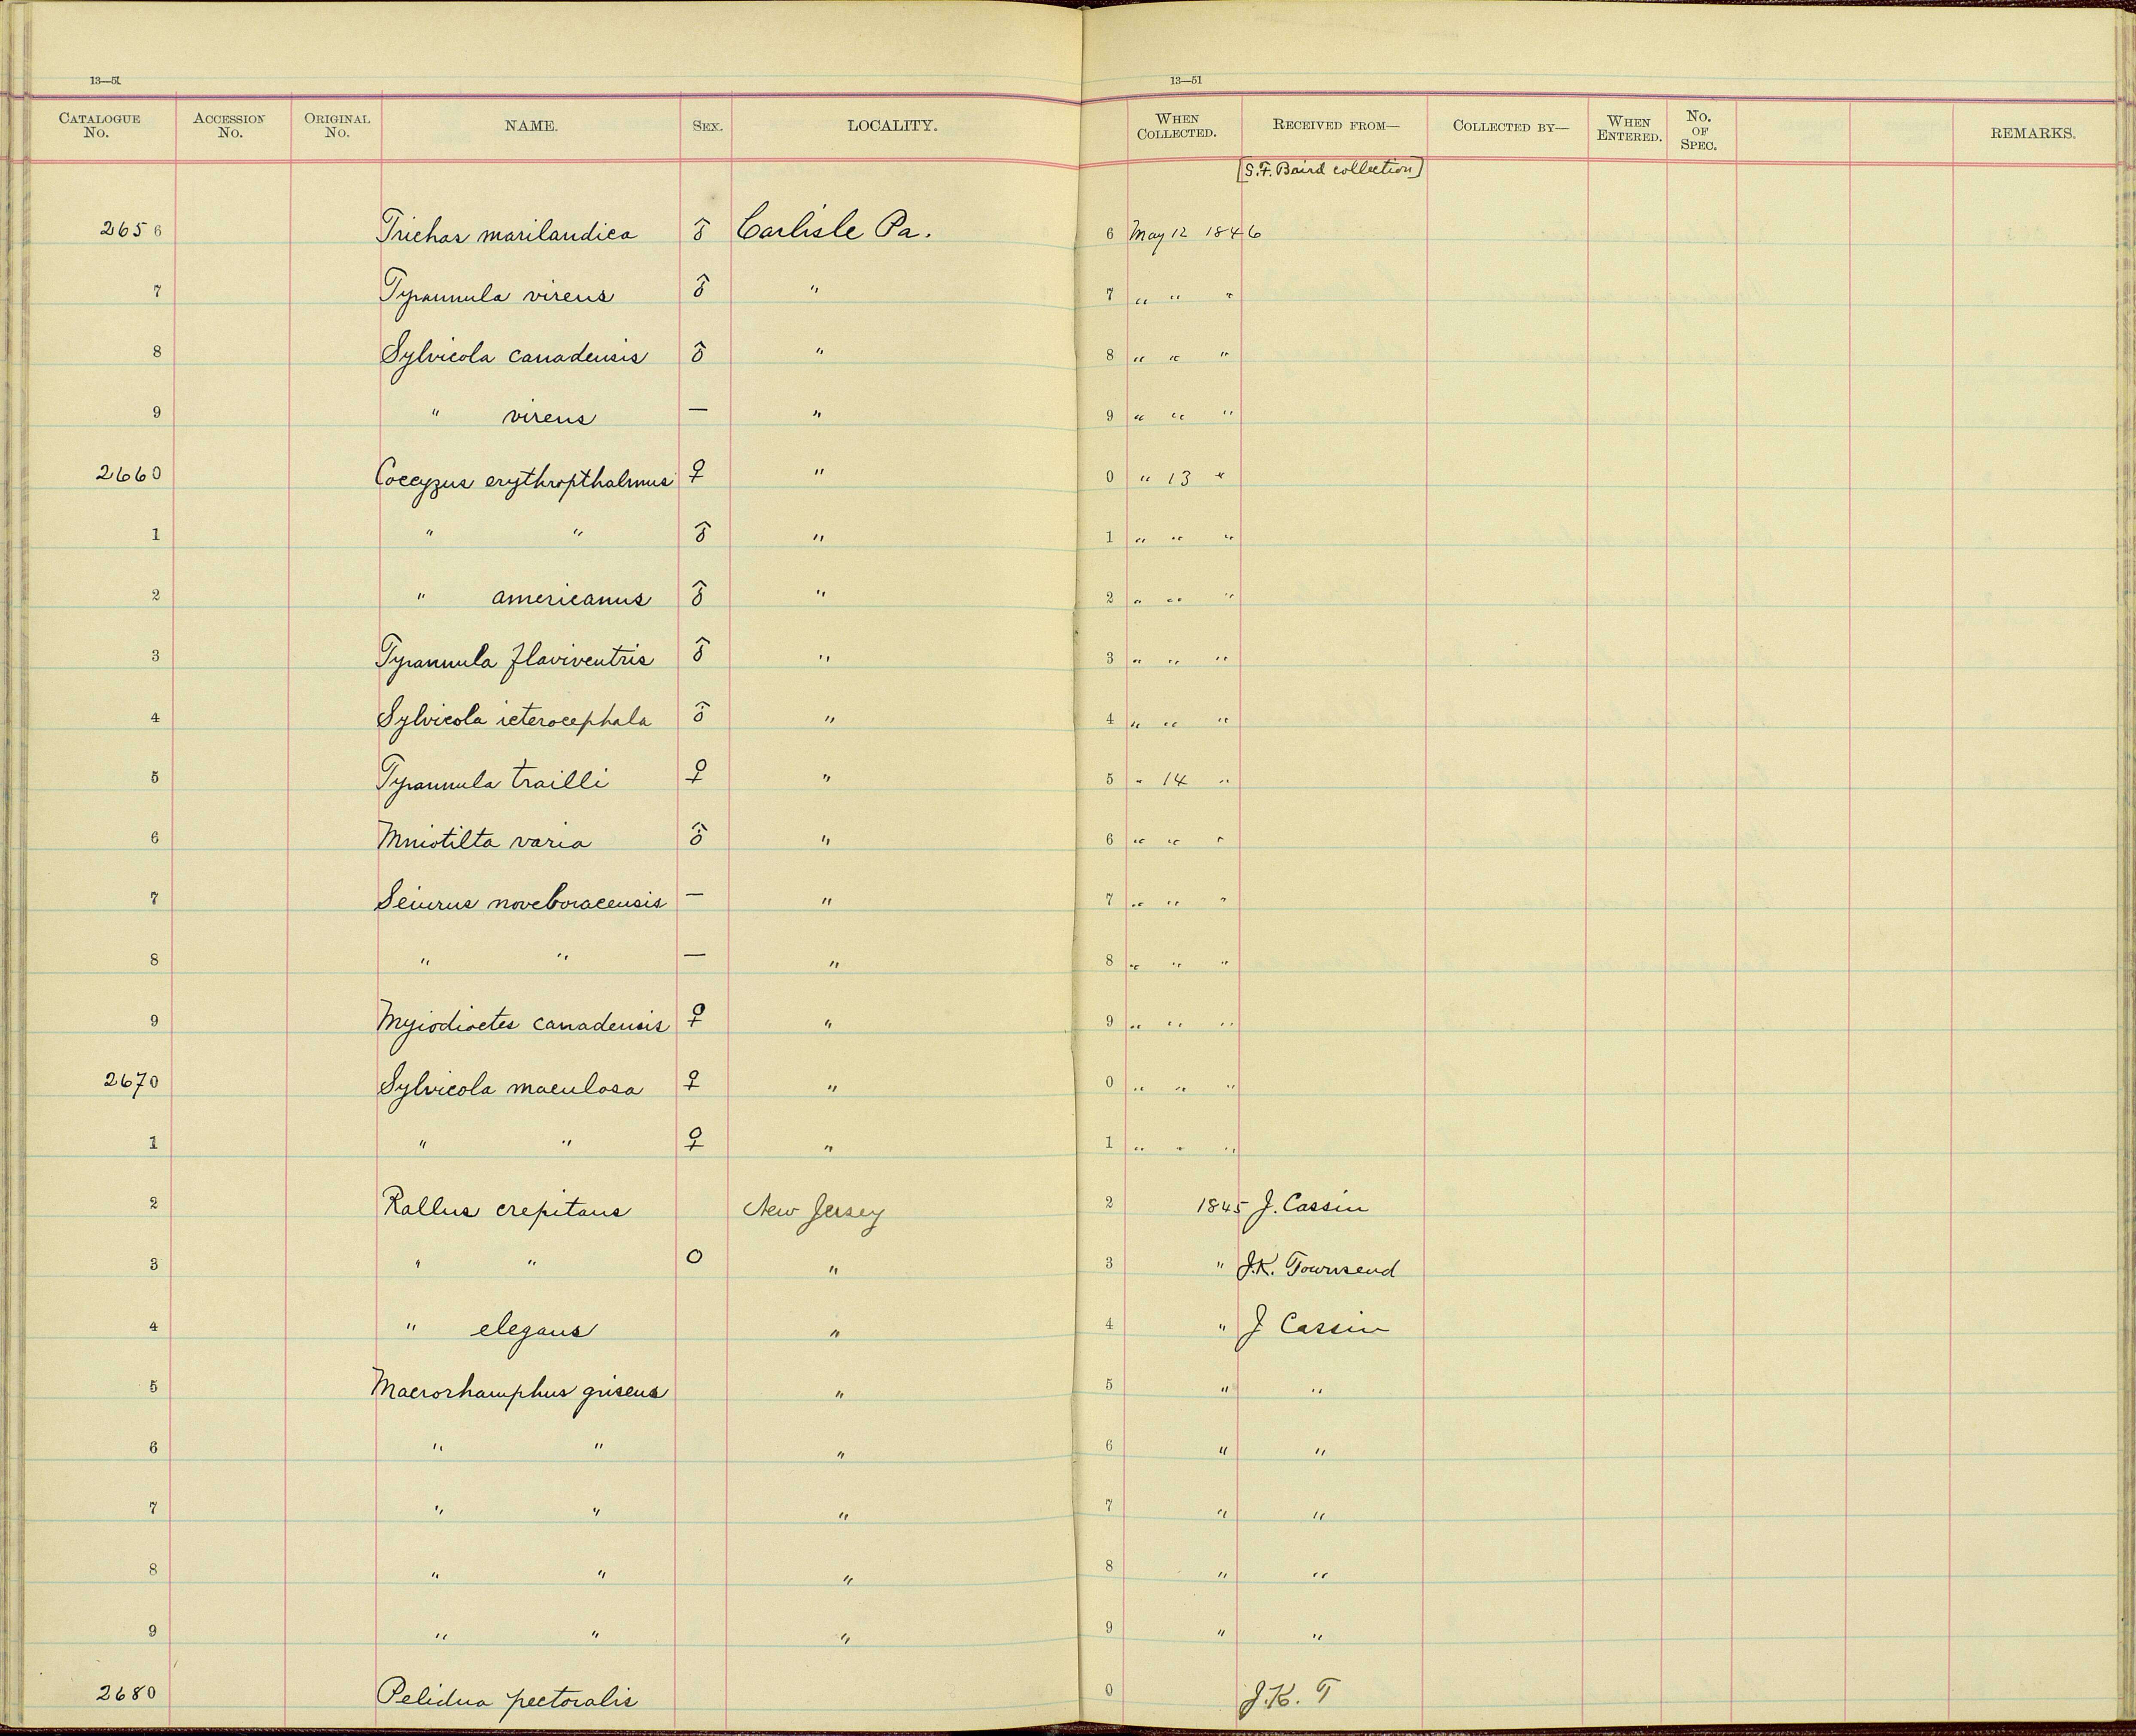 13—51 13—51
CATALOGUE No. ACCESSION No. ORIGINAL No. NAME. SEX. LOCALITY. WHEN COLLECTED. RECEIVED FROM— COLLECTED BY— WHEN ENTERED. No. OF SPEC. REMARKS.
[S.F. Baird collection]
2656 Trichas marilandica ♂ Carlisle Pa. 6 May 12 1846
7 Tyrannula virens ♂ " 7 " " "
8 Sylvicola canadensis ♂ " 8 " " "
9 " virens — " 9 " " "
2660 Coccyzus erythropthalmus ♀ " 0 " 13 "
1 " " ♂ " 1 " " "
2 " americanus ♂ " 2 " " "
3 Tyrannula flaviventris ♂ " 3 " " "
4 Sylvicola icterocephala ♂ " 4 " " "
5 Tyrannula trailli ♀ " 5 " 14 "
6 Mniotilta varia ♂ " 6 " " "
7 Seiurus noveboracensis — " 7 " " "
8 " " — " 8 " " "
9 Myiodioctes canadensis ♀ " 9 " " "
2670 Sylvicola maculosa ♀ " 0 " " "
1 " " ♀ " 1 " " "
2 Rallus crepitans New Jersey 2 1845 J. Cassin
3 " " O " 3 " J.K. Townsend
4 " elegans " 4 " J Cassin
5 Macrorhamphus griseus " 5 " "
6 " " " 6 " "
7 " " " 7 " "
8 " " " 8 " "
9 " " " 9 " "
2680 Pelidna pectoralis 0 J.K. T